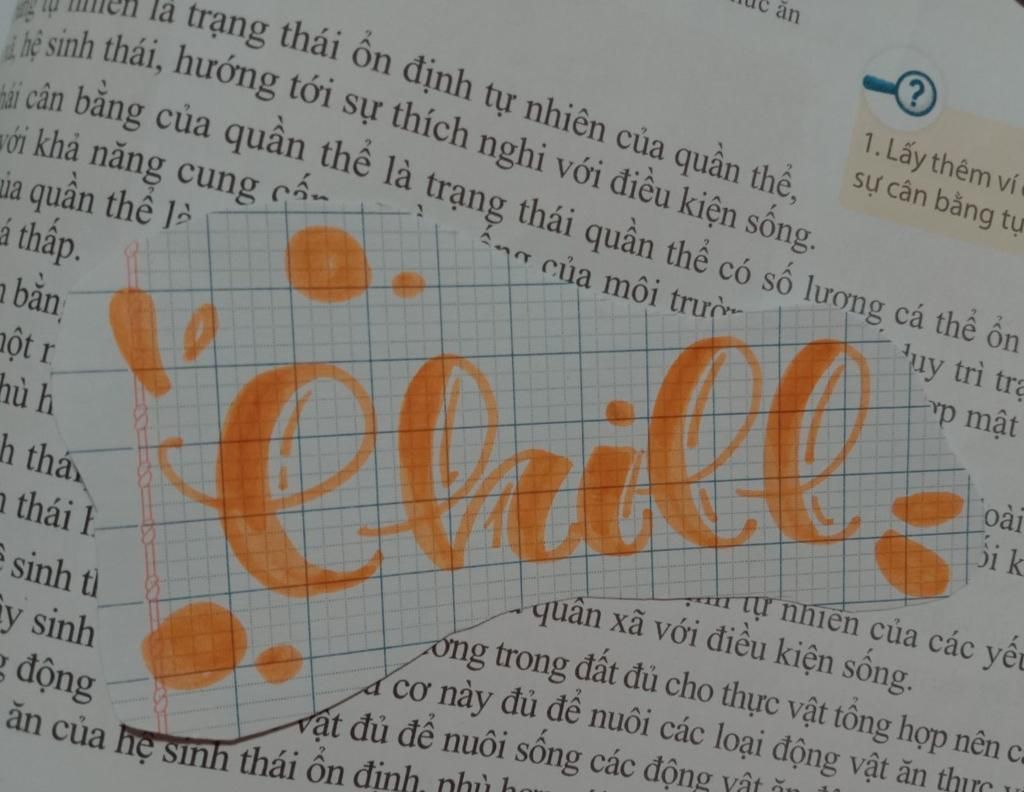 ức ăn
tự nhiên là trạng thái ổn định tự nhiên của quần thể,
hệ sinh thái, hướng tới sự thích nghi với điều kiện sống.
cân bằng của quần thể là trạng thái quần thể có số lượng cá thể ổn
với khả năng cung cấp của môi trường
của quần thể là duy trì
thấp.
1. Lấy thêm ví
sự cân bằng tự
mật
Chill
sinh
thái
sinh
sinh
động
tự nhiên của các yếu
quần xã với điều kiện sống.
trong đất đủ cho thực vật tổng hợp nên
cơ này đủ để nuôi các loại động vật ăn thực
vật đủ để nuôi sống các động vật ăn
ăn của hệ sinh thái ổn định, phù hợp